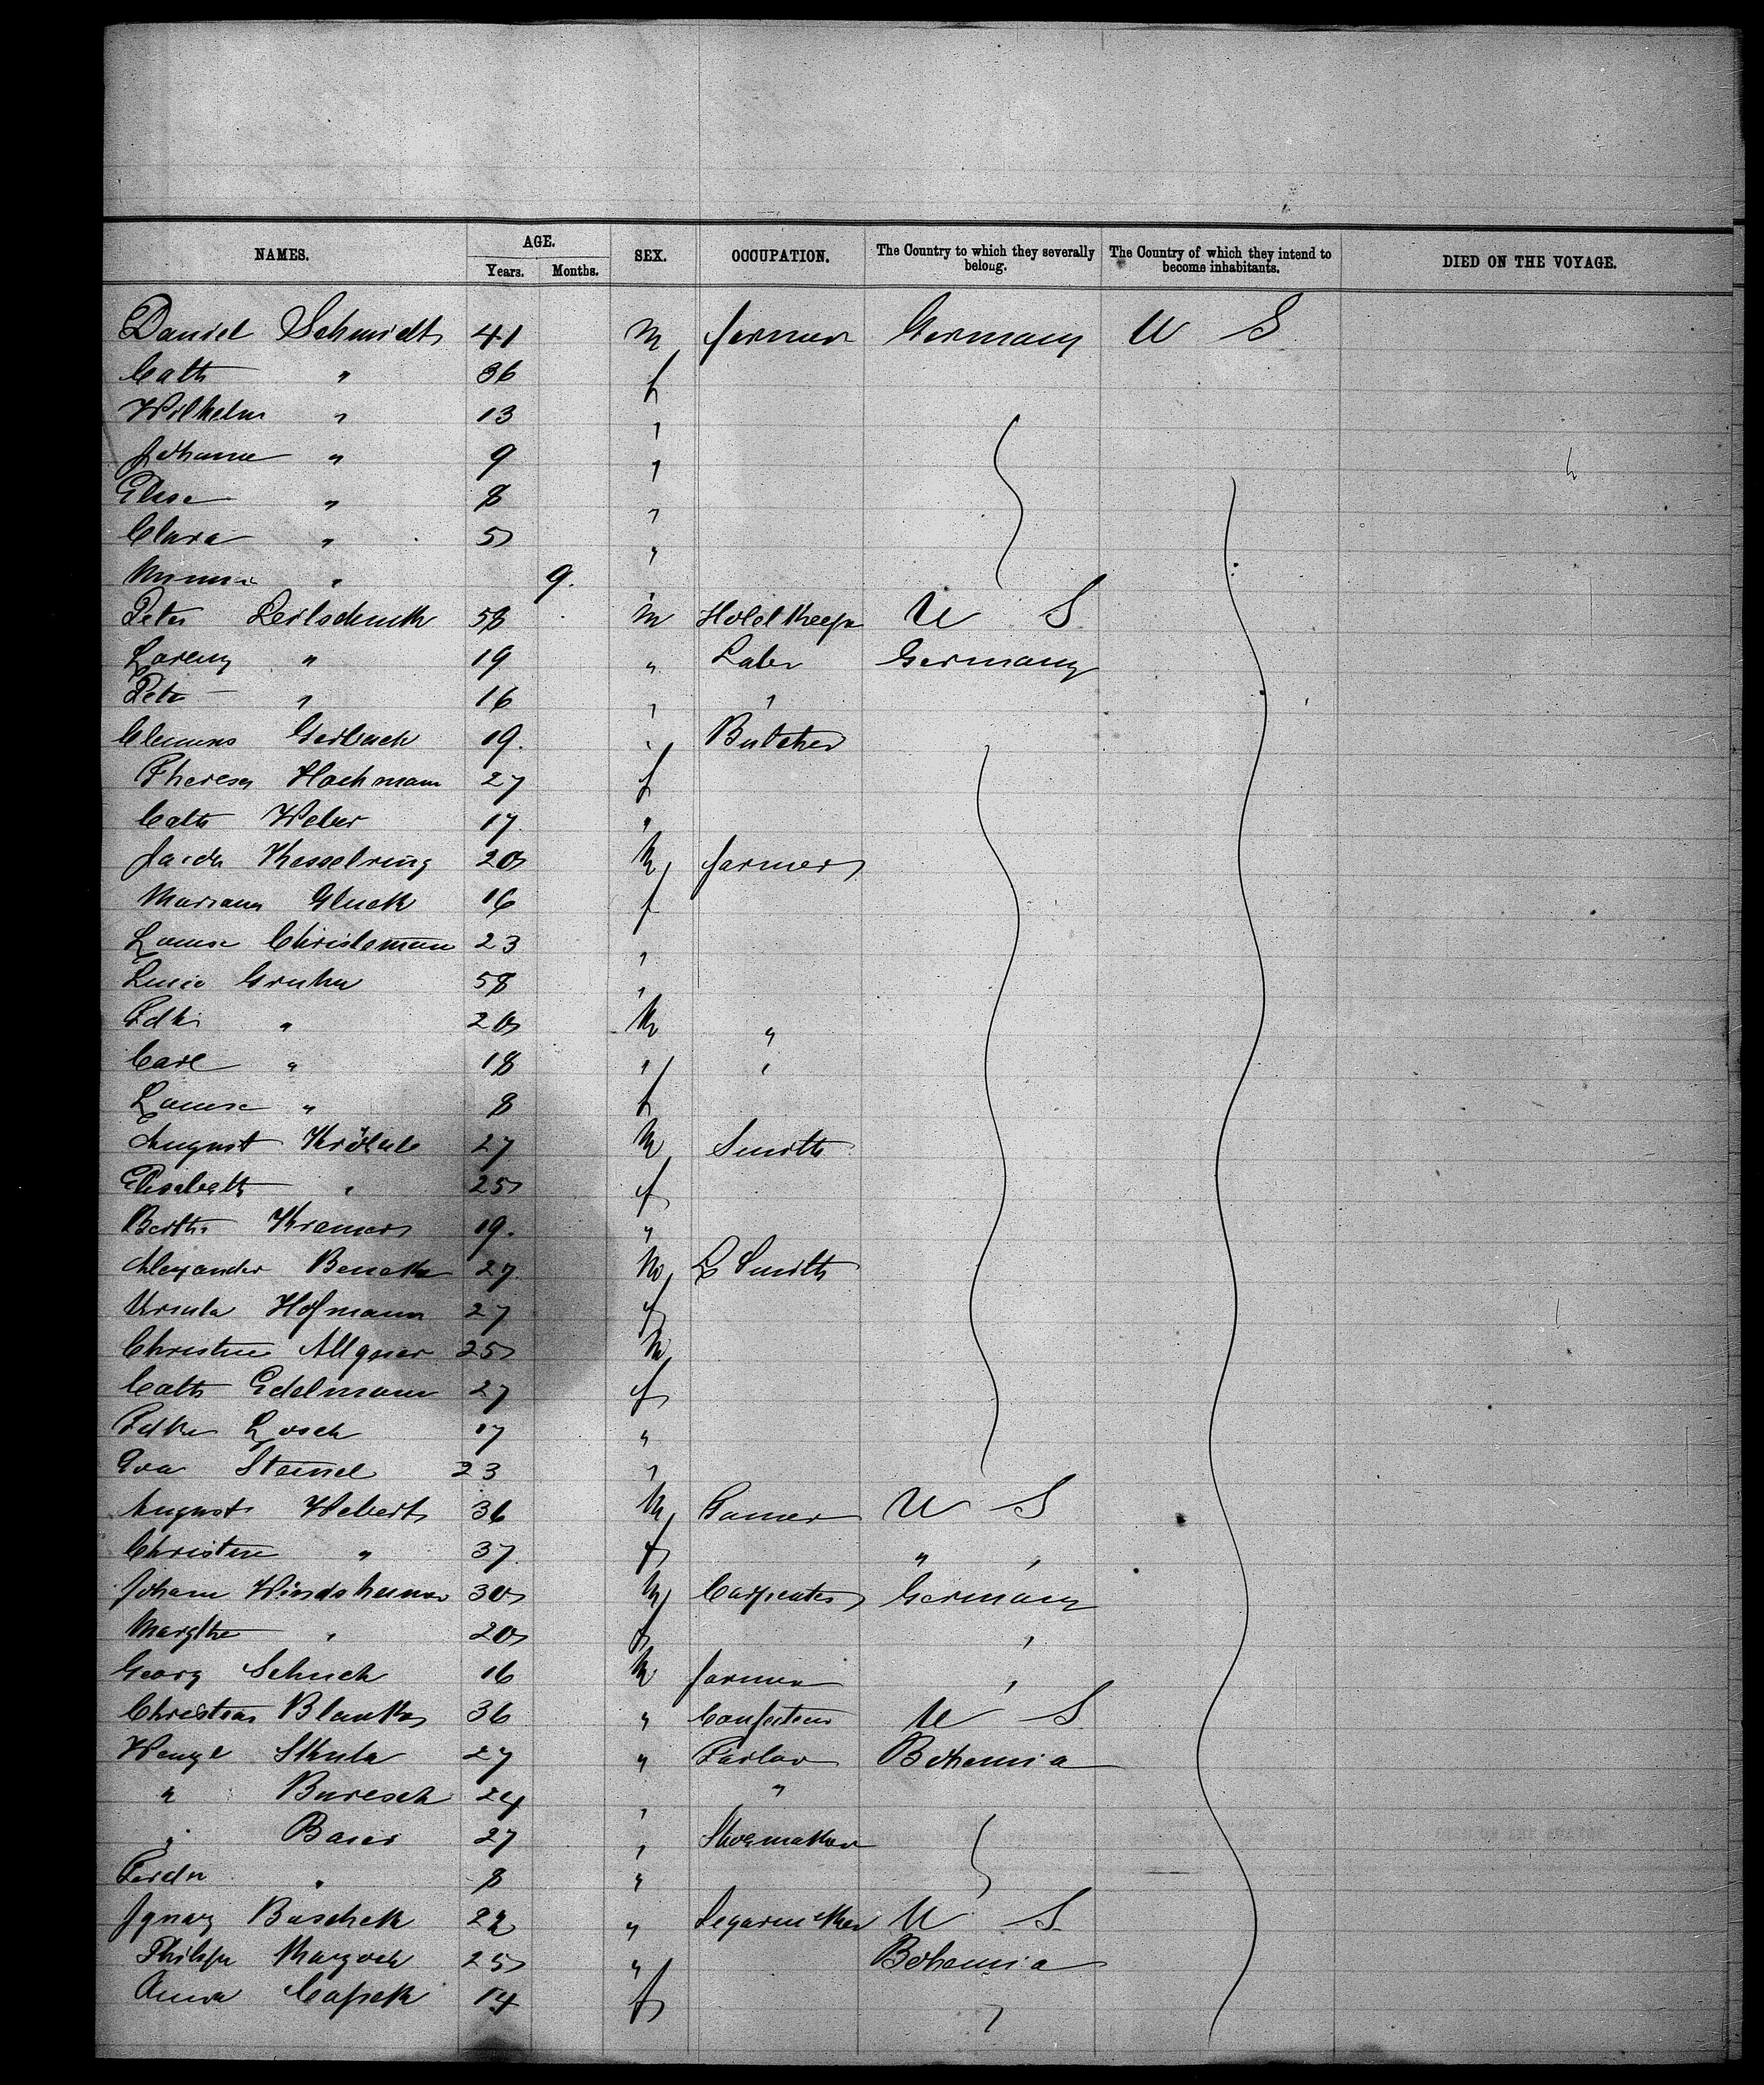 NAMES. AGE. SEX. OCCUPATION. The Country to which they severally belong. The Country of which they intend to become inhabitants. DIED ON THE VOYAGE.
Years. Months.
Daniel Schmidt 41 m farmer Germany U S
Cath " 36 f
Wilhelm " 13 "
Johanne " 9 "
Elise " 8 "
Clara " 5 "
Minna " 9. "
Peter 58 m Hotel Keeper U S
Lorenz " 19 " Labr Germany
Petr " 16 " "
Clemens Gerbach 19. " Butcher
Theresa Hochmann 27 f
Cath Weber 17 "
Jacob Kesselring 20 m farmer
Mariana Gluck 16 f
Louise Christemann 23 "
Lucie Gruhn 58 "
20 m "
Carl " 18 " "
Louise " 8 f
August 27 m Smith
Elisabeth " 25 f
Bertha Kramer 19. "
Alexander Benek 27 m L Smith
Ursula Hofmann 27 f
Christine Allgaier 25 m
Cath Edelmann 27 f
Losch 17 "
Eva Steinel 23 "
August Webert 36 m U S
Christine " 37 f " "
Johann 30 m Carpenter Germany
Margthe " 20 f "
Georg Schuck 16 m farmer "
Christian Blank 36 " U S
Wenzl Skula 27 " Tailor Bohemia
" Buresch 24 " "
" Baier 27 " Shoemaker
Ferdn " 8 "
Ignaz Baschek 22 " Segarmaker U S
Philipp 25 " Bohemia
Anna Capek 14 f "